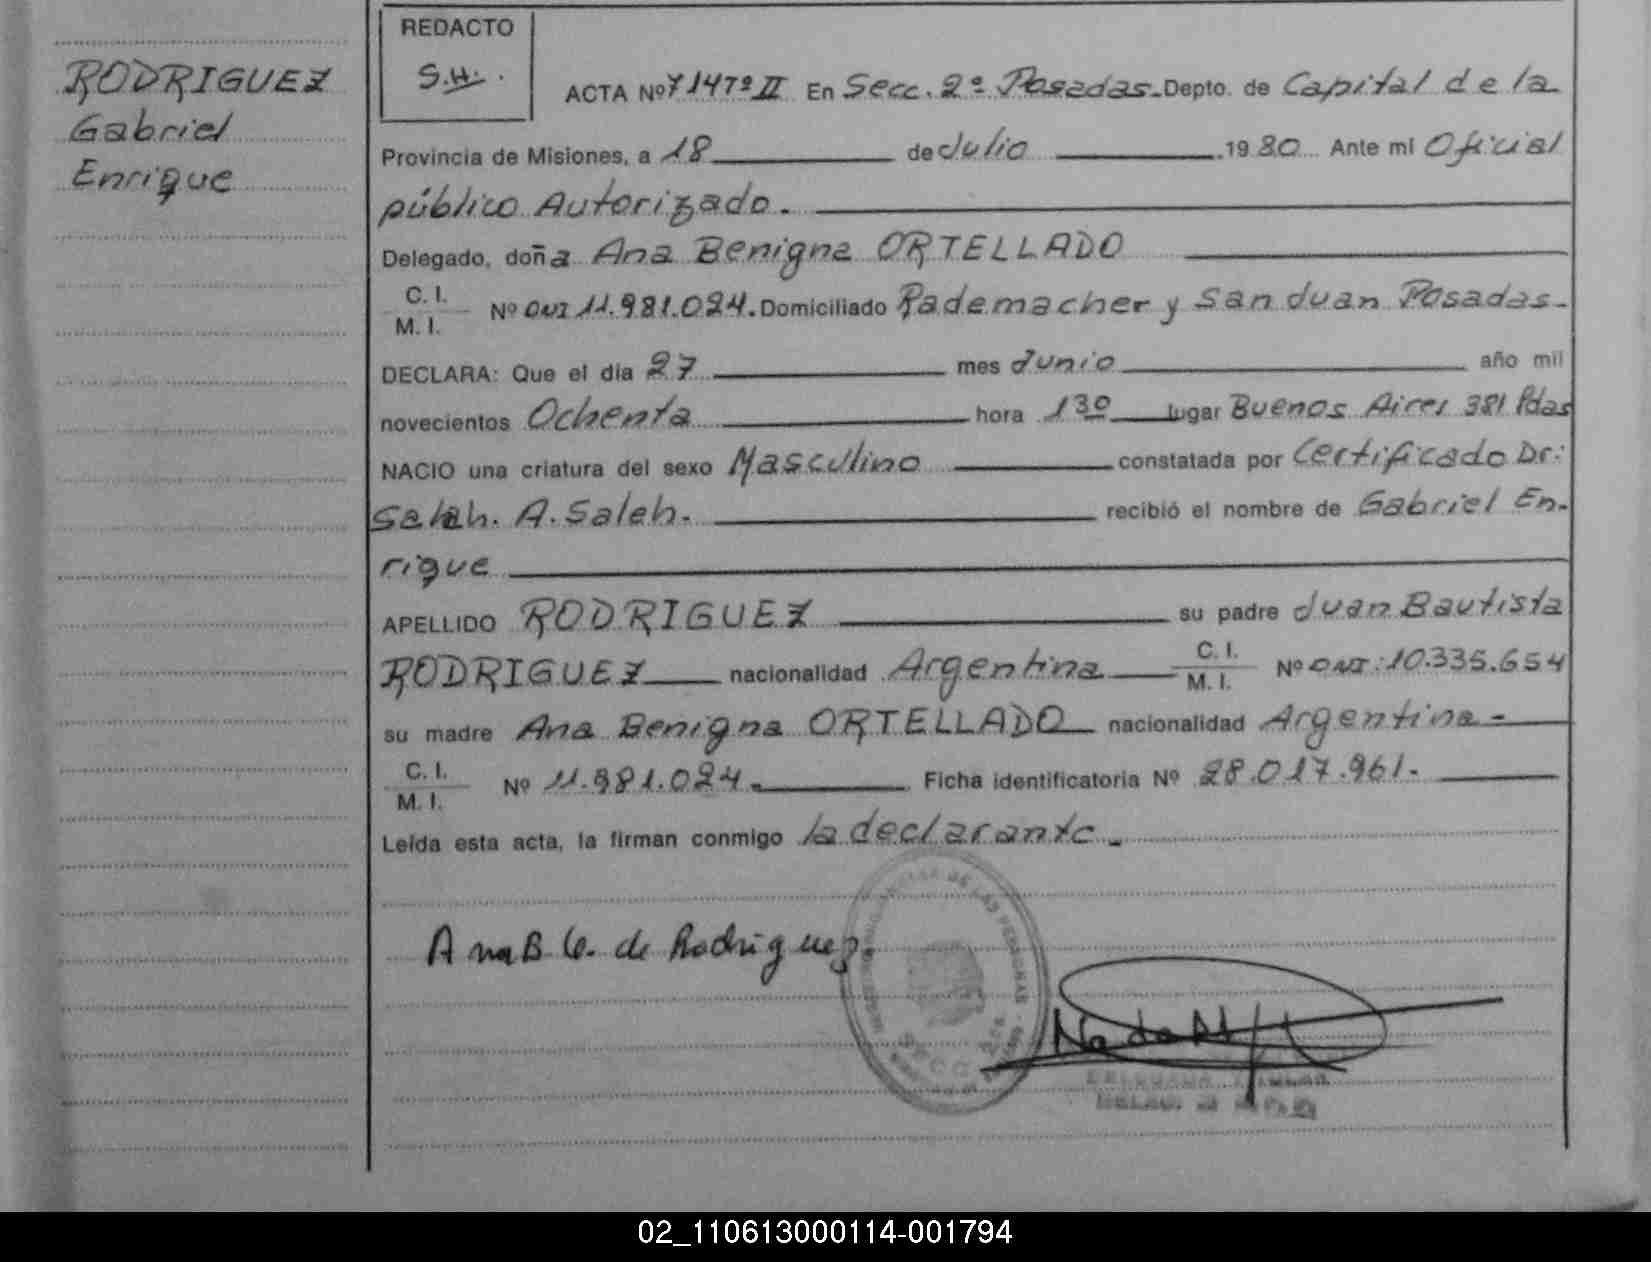 RODRIGUEZ
Gabriel
Enrique
REDACTO
S.H.
ACTA Nº 7147º II En Secc. 2ª Posadas. Depto. de Capital de la
Provincia de Misiones, a 18 de Julio 1980 Ante mi Oficial
público Autorizado.
Delegado, doña Ana Benigna ORTELLADO
C. I.
M. I. Nº DNI 11.981.024. Domiciliado Rademacher y San Juan Posadas.
DECLARA: Que el día 27 mes Junio año mil
novecientos Ochenta hora 1 30 lugar Buenos Aires 381 Pdas
NACIO una criatura del sexo Masculino constatada por Certificado Dr:
Saleh. A. Saleh. recibió el nombre de Gabriel En-
rique
APELLIDO RODRIGUEZ su padre Juan Bautista
RODRIGUEZ nacionalidad Argentina C. I. M. I. Nº DNI: 10.335.654
su madre Ana Benigna ORTELLADO nacionalidad Argentina -
C. I.
M. I. Nº 11.981.024. Ficha identificatoria Nº 28.017.961.
Leída esta acta, la firman conmigo la declarante.
Ana B. O. de Rodriguez.
DE LAS PERSONAS
SECC 2da
DELEGADA TITULAR
02_110613000114-001794